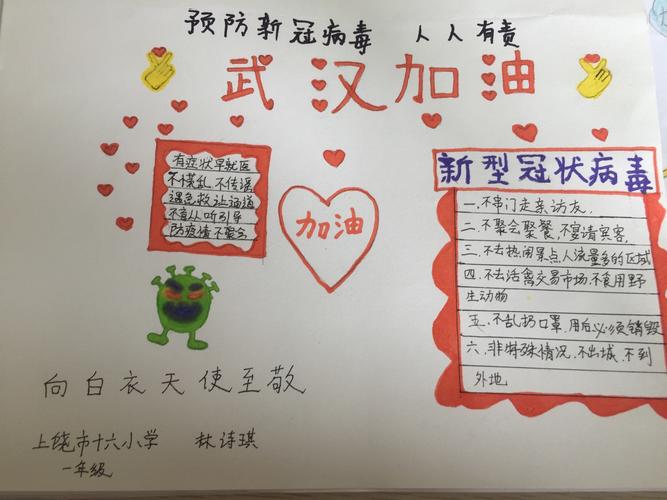 预防新冠病毒 人人有责
武汉加油
有症状早就医
不慌乱不传谣
遇急救让通道
不盲从听引导
防疫情不聚会
加油
新型冠状病毒
一.不串门走亲访友,
二.不聚会聚餐,不宴请宾客,
三.不去热闹景点人流量多的区域
四.不去活禽交易市场.不食用野
生动物
五.不乱扔口罩,用后必须销毁
六.非特殊情况,不出城,不到
外地
向白衣天使至敬
上饶市十六小学 林诗琪
一年级